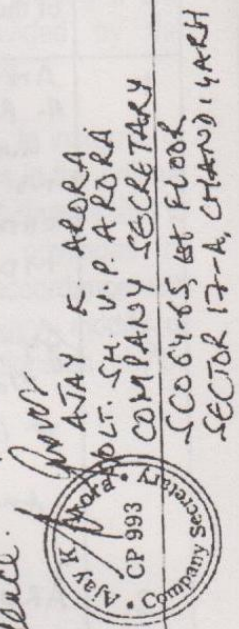 AJAY K. ARORA
SH. V.P. ARORA
COMPANY SECRETARY
SCO 64-65, Ist FLOOR
SECTOR 17-A, CHANDIGARH
Ajay K. Arora
CP 993
Company Secretary